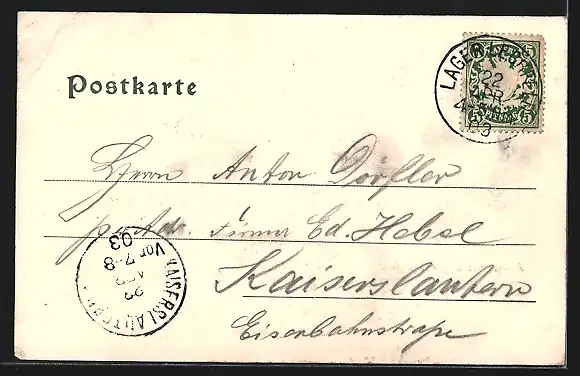 Postkarte
LAGER LECHFELD
22
APR
03
5 5
5 PFENNIG 5
Herrn Anton Dörfler
p. Adr. Firma Ed. Hebel
Kaiserslautern
Eisenbahnstraße
KAISERSLAUTERN
23
APR
Vor 7-8
03